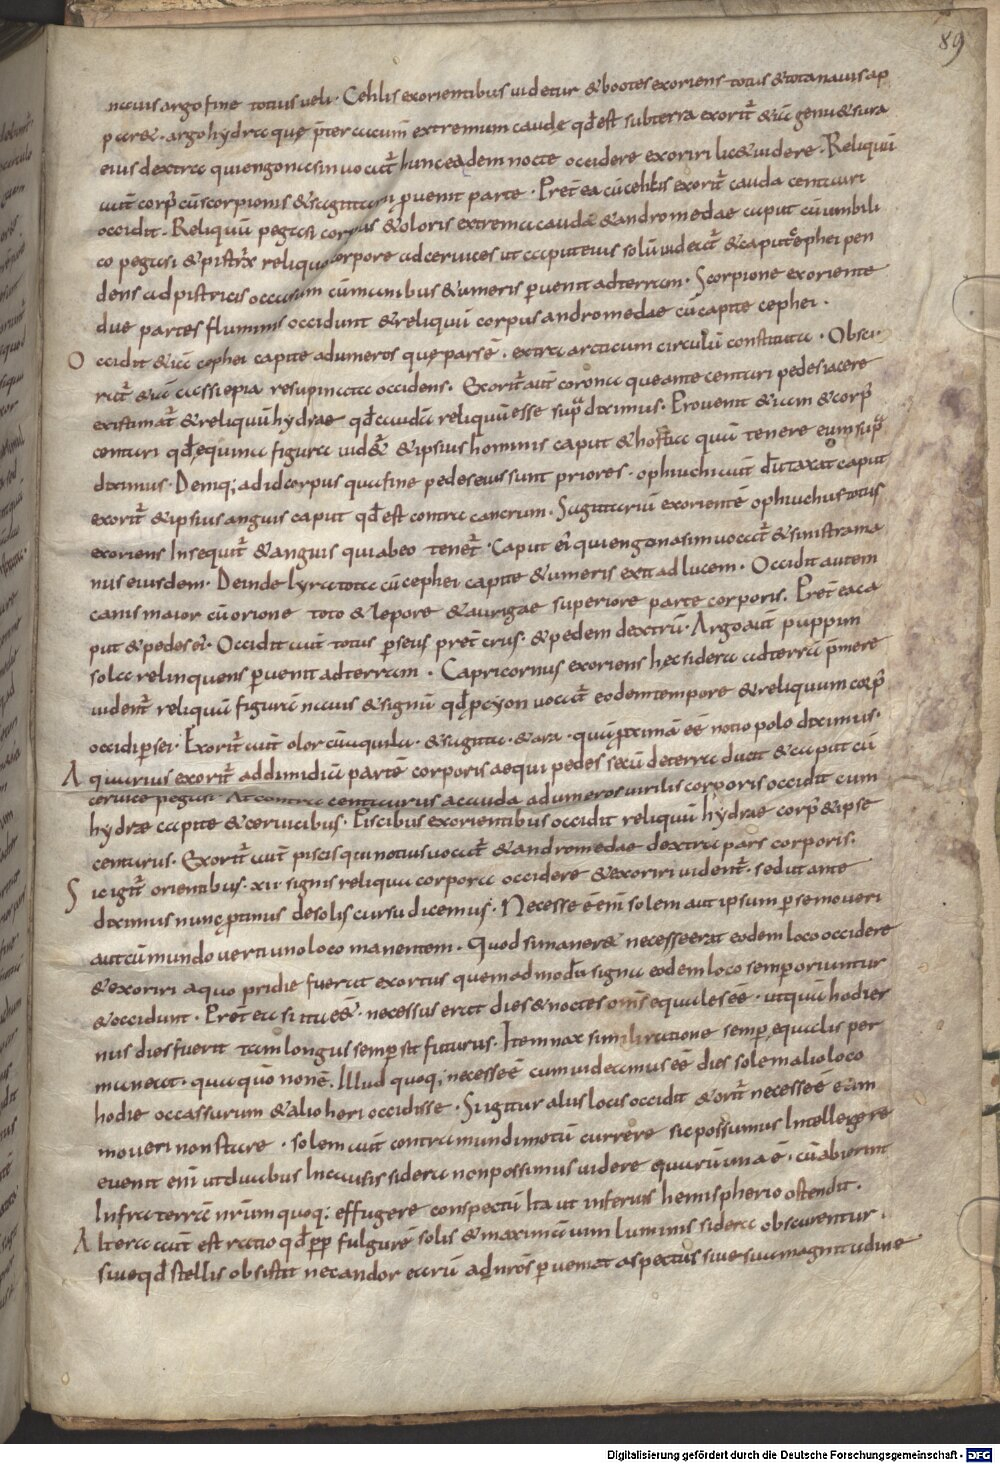 89
nauis argo fine totius ueli · Cehlis exorientibus uidetur & bootes exoriens totus & tota nauis ap
par& · argo hydra que p̄ter caeum extremum caude qđ est subterra exorit̃ & iā genu & sura
eius dextra qui engonasin uocat̃ hunc eadem nocte occidere exoriri lic& uidere · Reliquū
aut̄ corp̄ cū scorpionis & sagittarii puenit parte · Pret̄ ea cū cehlis exorit̃ cauda centauri
occidit · Reliquū pegasi corpus & oloris extrema cauda & andromedae caput cū umbili
co pegasi & pistrix reliquo corpore ad ceruices ut caput eius solū uideat̃ & caput cephei pen
dens ad pistricis occasum cū manibus & umeris puenit ad terram · Scorpione exoriente
due partes fluminis occidunt & reliquū corpus andromedae cū capite cephei ·
O ccidit & iā cephei capite ad umeros que pars ē · extra arcticum circulū constituta · Obscu
rat̃ & iā cassiepia resupinata occidens · Exorit̃ aut̄ corona que ante centauri pedes iacere
existimat̃ & reliquū hydrae qđ caudā reliquū esse sup̃ diximus · Prouenit & iam & corp̃
centauri qđ equina figura uid& & ipsius hominis caput & hostia quā tenere eum sup̃
diximus · Demq; ad id corpus qua fine pedes eius sunt priores · ophiuchi aut̄ dūtaxat caput
exorit̃ & ipsius anguis caput qđ est contra cancrum · Sagittariū exorientē ophiuchus totus
exoriens Insequit̃ & anguis qui ab eo tenet̃ · Caput ei qui engonasim uocat̃ & sinistra ma
nus eiusdem · Deinde lyra tota cū cephei capite & umeris exit ad lucem · Occidit autem
canis maior cū orione toto & lepore & aurigae superiore parte corporis · Pret̄ ea ca
put & pedes ei · Occidit aut̄ totus pseus pret̄ crus · & pedem dextrū · Argo aut̄ puppim
sola relinquens puenit ad terram · Capricornus exoriens hec sidera ad terrā p̄mere
uident̃ reliquū figurā nauis & signū qđ pcyon uocat̃ eodem tempore & reliquum corp̃
occidi psei · Exorit̃ aut̄ olor cū aquila · & sagitta · & ara · quā p̄ximā eē notio polo diximus ·
A quarius exorit̃ ad dimidiū partē corporis aequi pedes secū deterra ducit & caput cū
ceruice pegasi · At contra centaurus a cauda ad umeros uirilis corporis occidit cum
hydrae capite & ceruicibus · Piscibus exorientibus occidit reliquū hydrae corp̃ & ipse
centurus · Exorit̃ aut̄ piscis qui notius uocat̃ & andromedae dextra pars corporis ·
S ic igit̃ orientibus · xii · signis reliqua corpora occidere & exoriri uident̃ · sed ut ante
diximus nunc p̄timus de solis cursu dicemus · Necesse ē enī solem aut ipsum p se moueri
aut cū mundo uerti uno loco manentem · Quod si maner& necesse erat eodem loco occidere
& exoriri a quo pridie fuerat exortus quemadmodū signa eodem loco semp oriuntur
& occidunt · Pret̄ ea si ita eē& · necessus erat dies & noctes om̄s equales eē · ut quā hodier
nus dies fuerit tam longus semp sit futurus · Item nax simili ratione semp equalis per
maneat · qua quō non ē · Illud quoq; necesse ē cum uideamus eē dies solem alio loco
hodie occassurum & alio heri occidisse · Si igitur aliis locis occidit & orit̃ necesse ē eam
moueri non stare · solem aut̄ contra mundi motū currere sic possumus Intellegere
euenit enī ut duabus Incausis sidera non possimus uidere quarū una ē · cū abierint
Infra terrā nr̄um quoq; effugere conspectū Ita ut inferius hemispherio ostendit ·
A ltera aut̄ est ratio qđ p̄p fulgurē solis & maximā uim luminis sidera obscurentur ·
siue qđ stellis obsistit ne candor earū ad nr̄os pueniat aspectus siue sua magnitudine
Digitalisierung gefördert durch die Deutsche Forschungsgemeinschaft - DFG